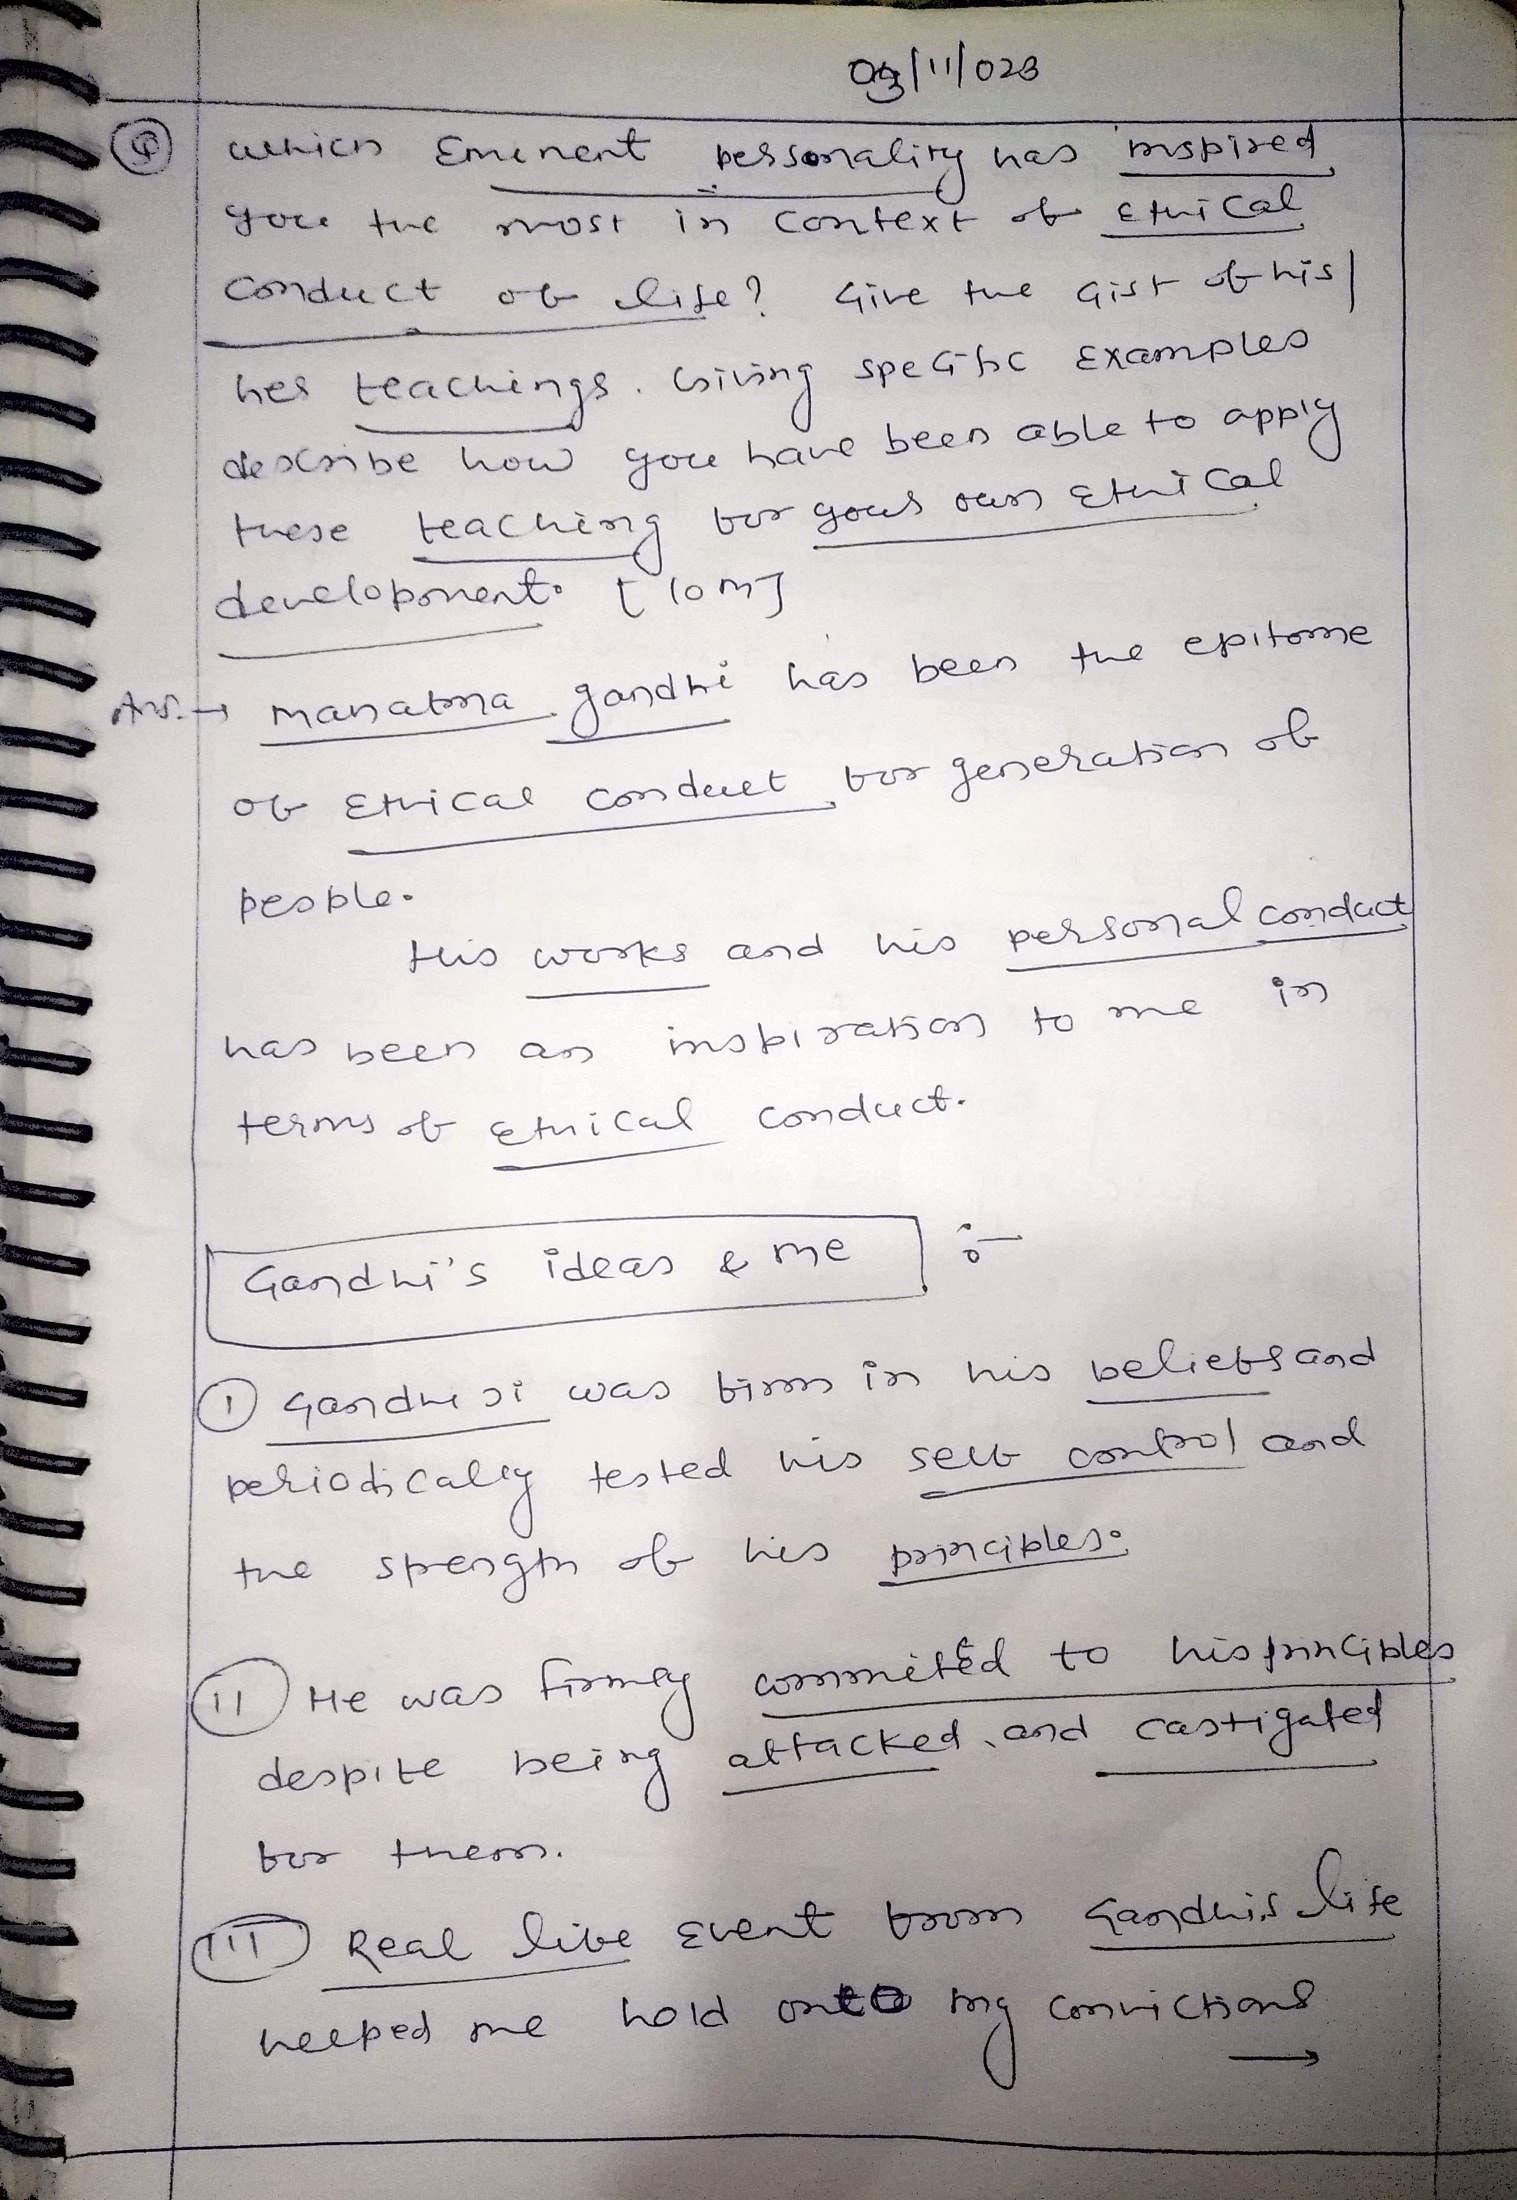 03/11/023
Q which Eminent personality has inspired
you the most in context of Ethical
conduct of life? Give the Gist of his/
her teachings. Giving specific Examples
describe how you have been able to apply
these teaching for your own Ethical
development. [10m]
Ans. → Mahatma gandhi has been the epitome
of Ethical conduct for generation of
people.
His works and his personal conduct
has been an inspiration to me in
terms of Ethical conduct.
Gandhi's ideas & me :-
I Gandhi ji was firm in his beliefs and
periodically tested his self control and
the strength of his principles.
II He was firmly committed to his principles
despite being attacked and castigated
for them.
III Real life Event from Gandhi's life
helped me hold onto my convictions
→